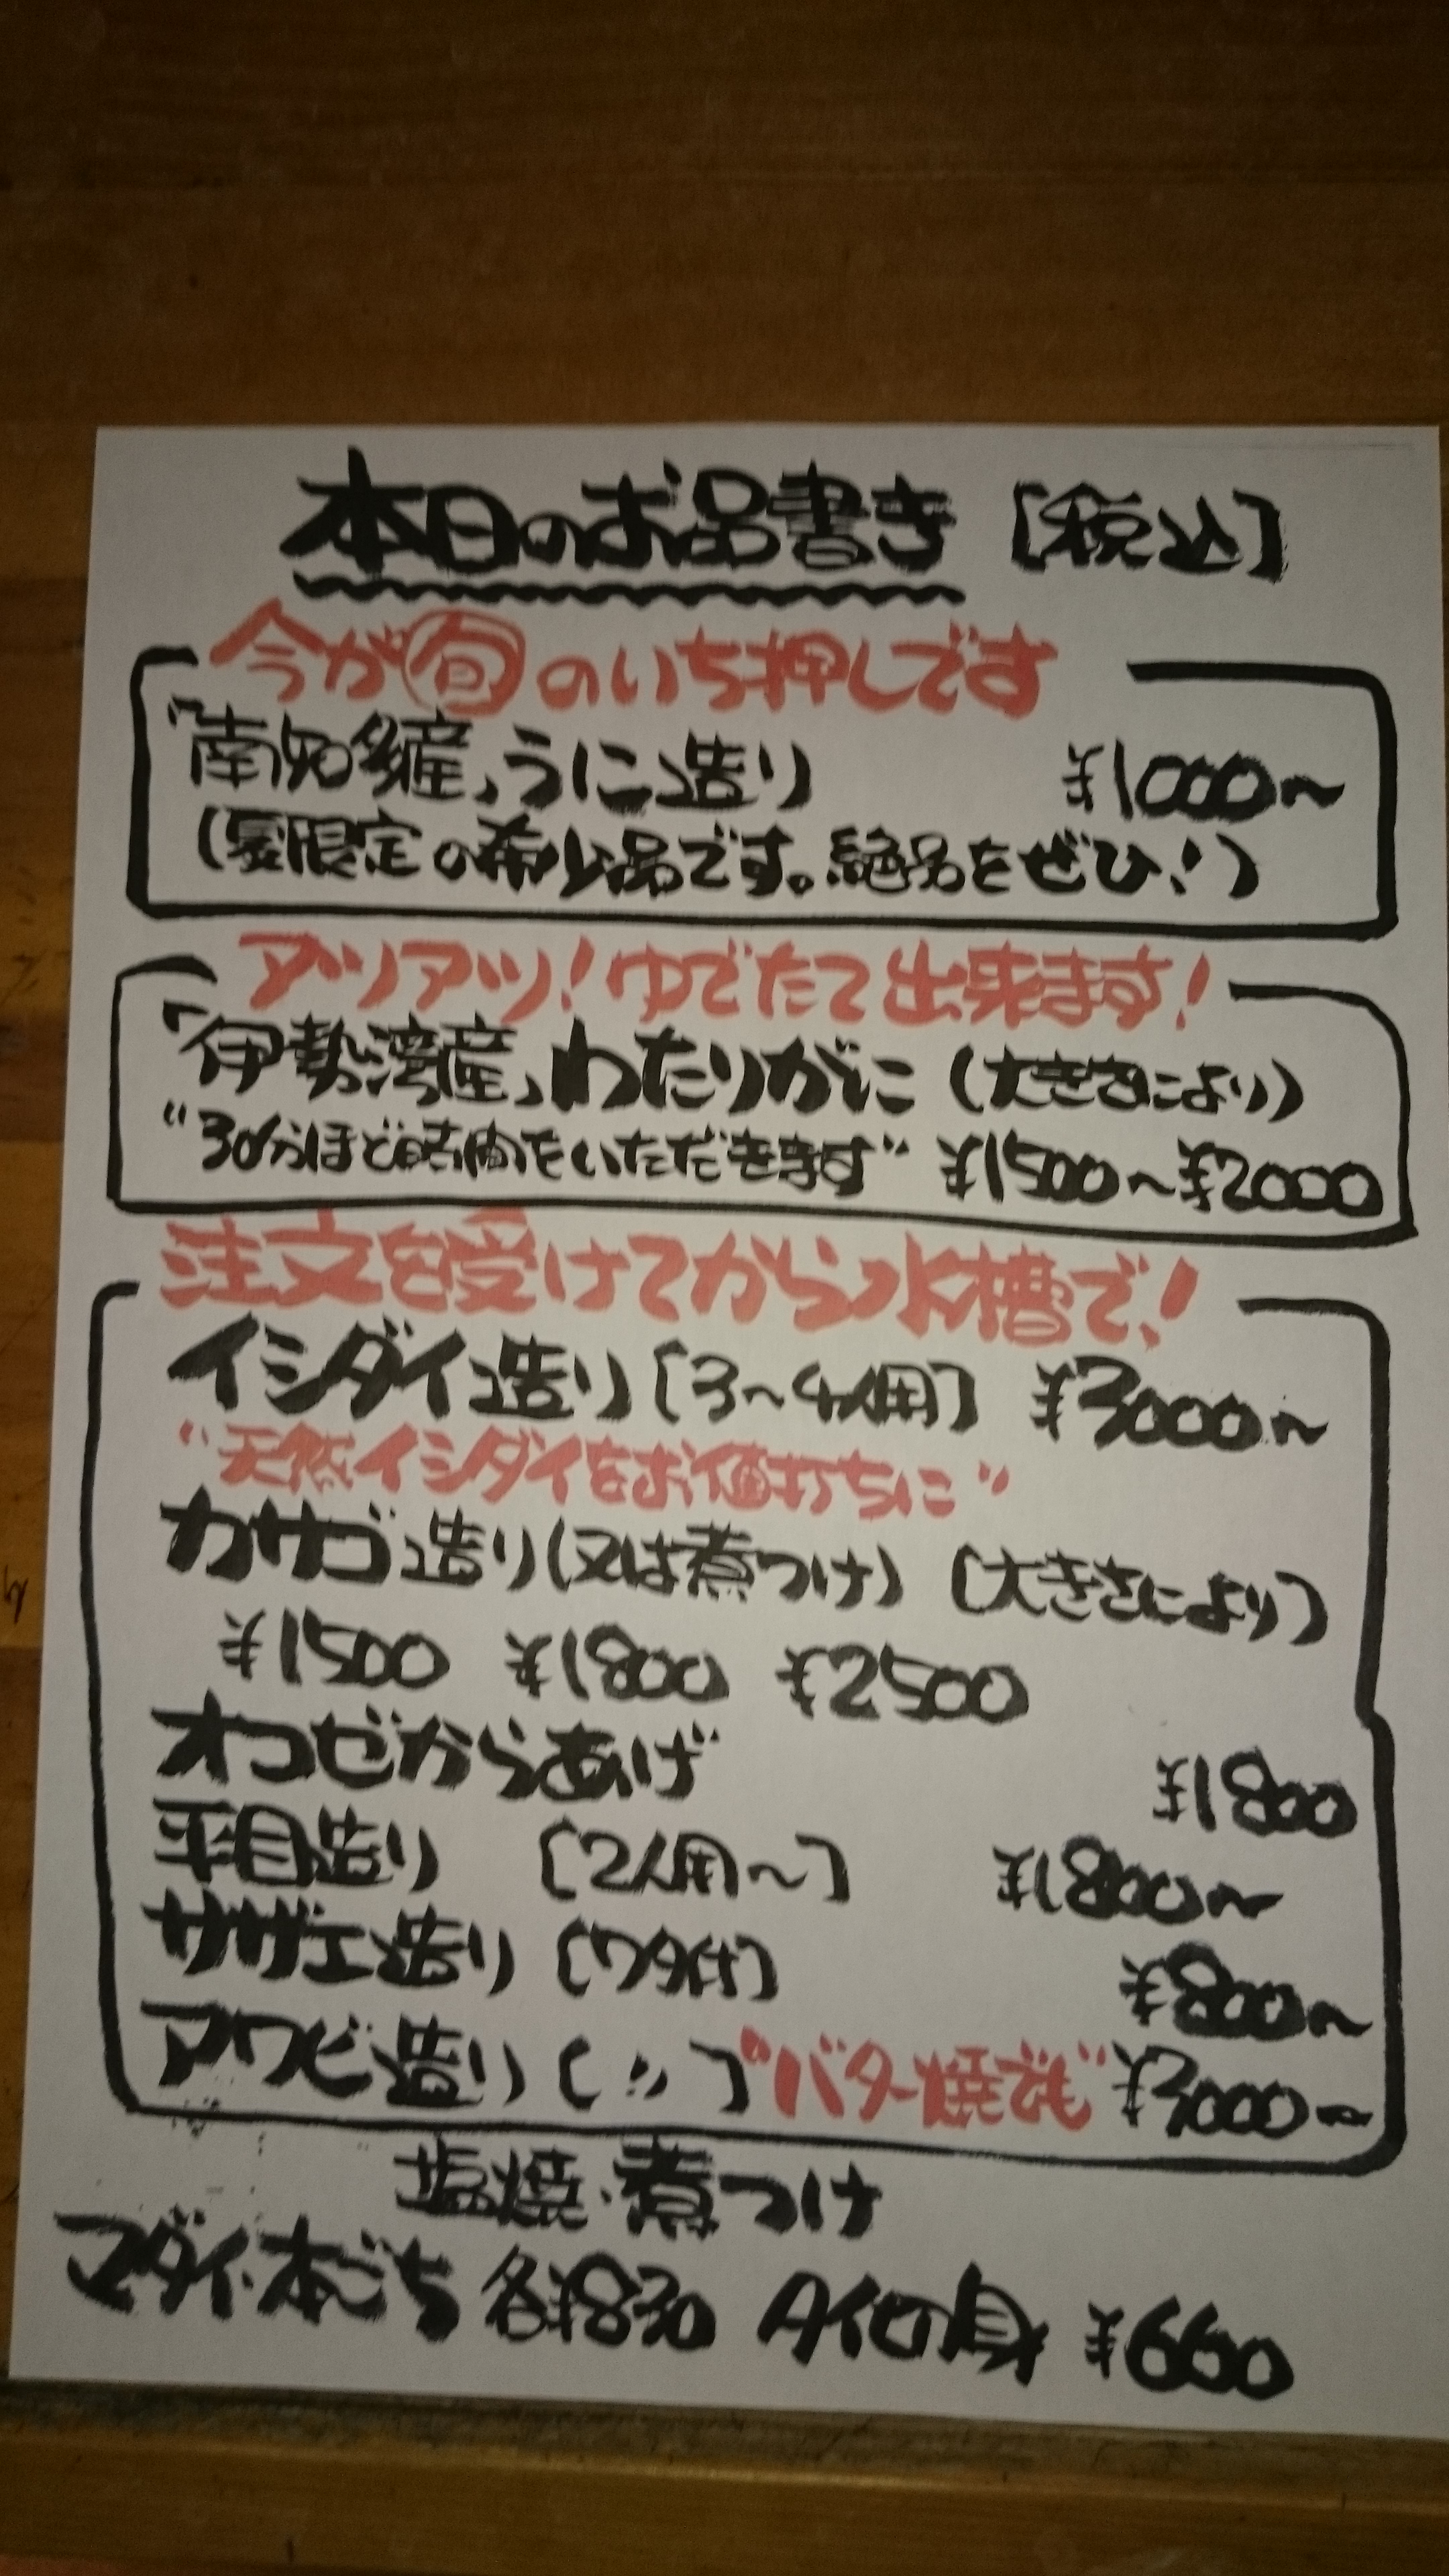 本日のお品書き [税込]
今が旬のいち押しです
「南知多産」うに造り ¥1000~
(夏限定の希少品です。絶品をぜひ!)
アツアツ!ゆでたて出来ます!
「伊勢湾産」わたりがに (大きさにより)
"30分ほど時間をいただきます" ¥1500~¥2000
注文を受けてから水槽で!
イシダイ造り [3~4人用] ¥3000~
"天然イシダイをお値打ちに"
カサゴ造り(又は煮つけ) [大きさにより]
¥1500 ¥1800 ¥2500
オコゼからあげ ¥1800
平目造り [2人用~] ¥1800~
サザエ造り [ワタ付] ¥800~
アワビ造り [〃] "バター焼でも" ¥3000~
塩焼・煮つけ
マダイ・本ごち 各¥830 タイの身 ¥660